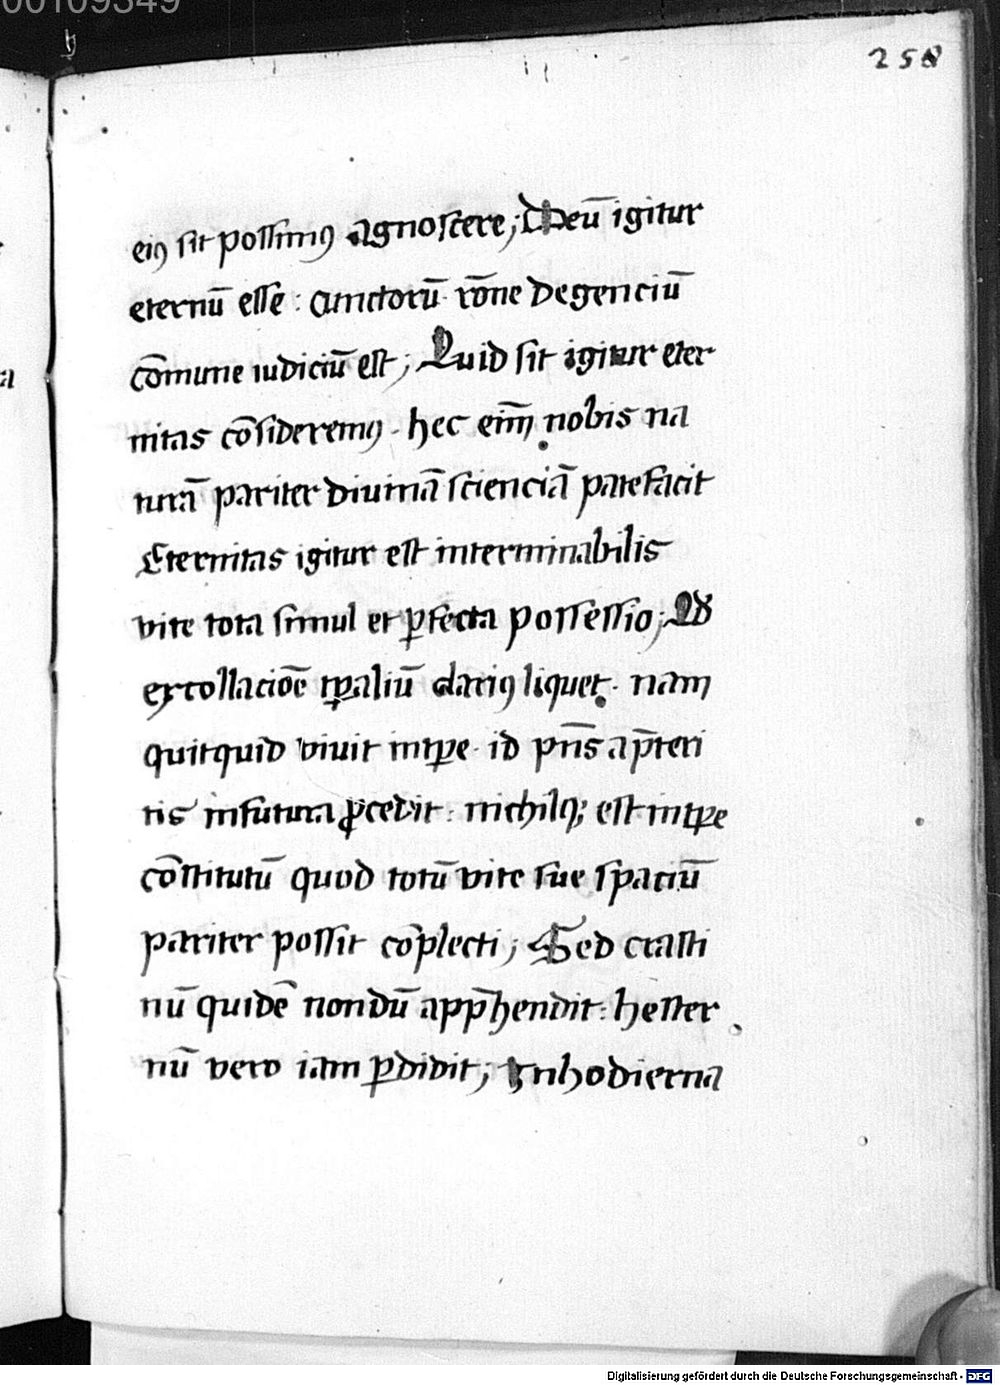 00109349
258
eiꝰ sit possimꝰ agnoscere; Deū igitur
eternū esse : cunctorū rōne degenciū
cōmune iudiciū est; Quid sit igitur eter
nitas cōsideremꝰ · hec eiīn nobis na
turā pariter diuinā scienciā patefacit
Eternitas igitur est interminabilis
vite tota simul et ꝑfecta possessio; Qd
ex collacioē tꝑaliū clariꝰ liquet · nam
quitquid viuit in tꝑe · id pn̄s a p̄teri
tis in futura ꝓcedit : nichilqꝫ est in tꝑe
cōstitutū quod totū vite sue spaciū
pariter possit cōplecti; Sed crasti
nū quidē nondū app̄hendit : hester
nū vero iam ꝑdidit; In hodierna
Digitalisierung gefördert durch die Deutsche Forschungsgemeinschaft - DFG